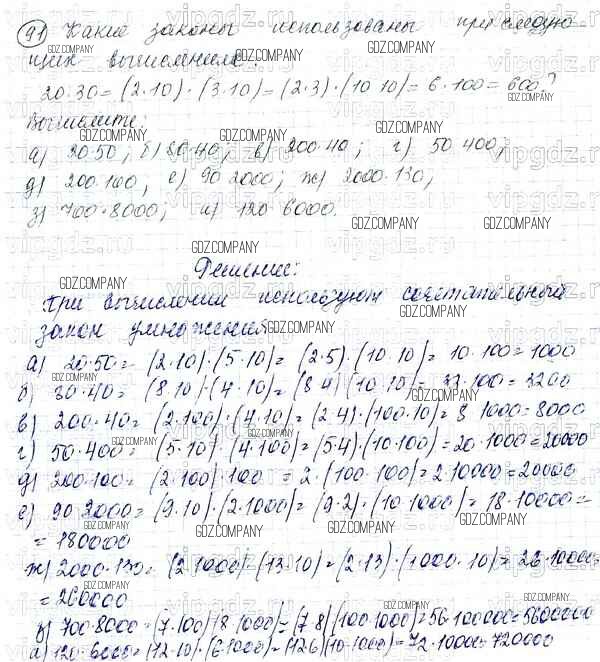 91) Какие законы использованы при следую-
щих вычислениях:
20·30=(2·10)·(3·10)=(2·3)·(10·10)=6·100=600?
Вычислите:
а) 20·50; б) 80·40; в) 200·40; г) 50·400;
д) 200·100; е) 90·2000; ж) 2000·130;
з) 700·8000; и) 120·6000.
Решение:
При вычислении используют сочетательный
закон умножения
а) 20·50=(2·10)·(5·10)=(2·5)·(10·10)=10·100=1000
б) 80·40=(8·10)·(4·10)=(8·4)(10·10)=32·100=3200
в) 200·40=(2·100)·(4·10)=(2·4)·(100·10)=8·1000=8000
г) 50·400=(5·10)·(4·100)=(5·4)·(10·100)=20·1000=20000
д) 200·100=(2·100)·100=2·(100·100)=2·10000=20000
е) 90·2000=(9·10)·(2·1000)=(9·2)·(10·1000)=18·10000=
=180000
ж) 2000·130=(2·1000)·(13·10)=(2·13)·(1000·10)=26·10000=
=260000
з) 700·8000=(7·100)(8·1000)=(7·8)(100·1000)=56·100000=5600000
и) 120·6000=(12·10)·(6·1000)=(12·6)(10·1000)=72·10000=720000